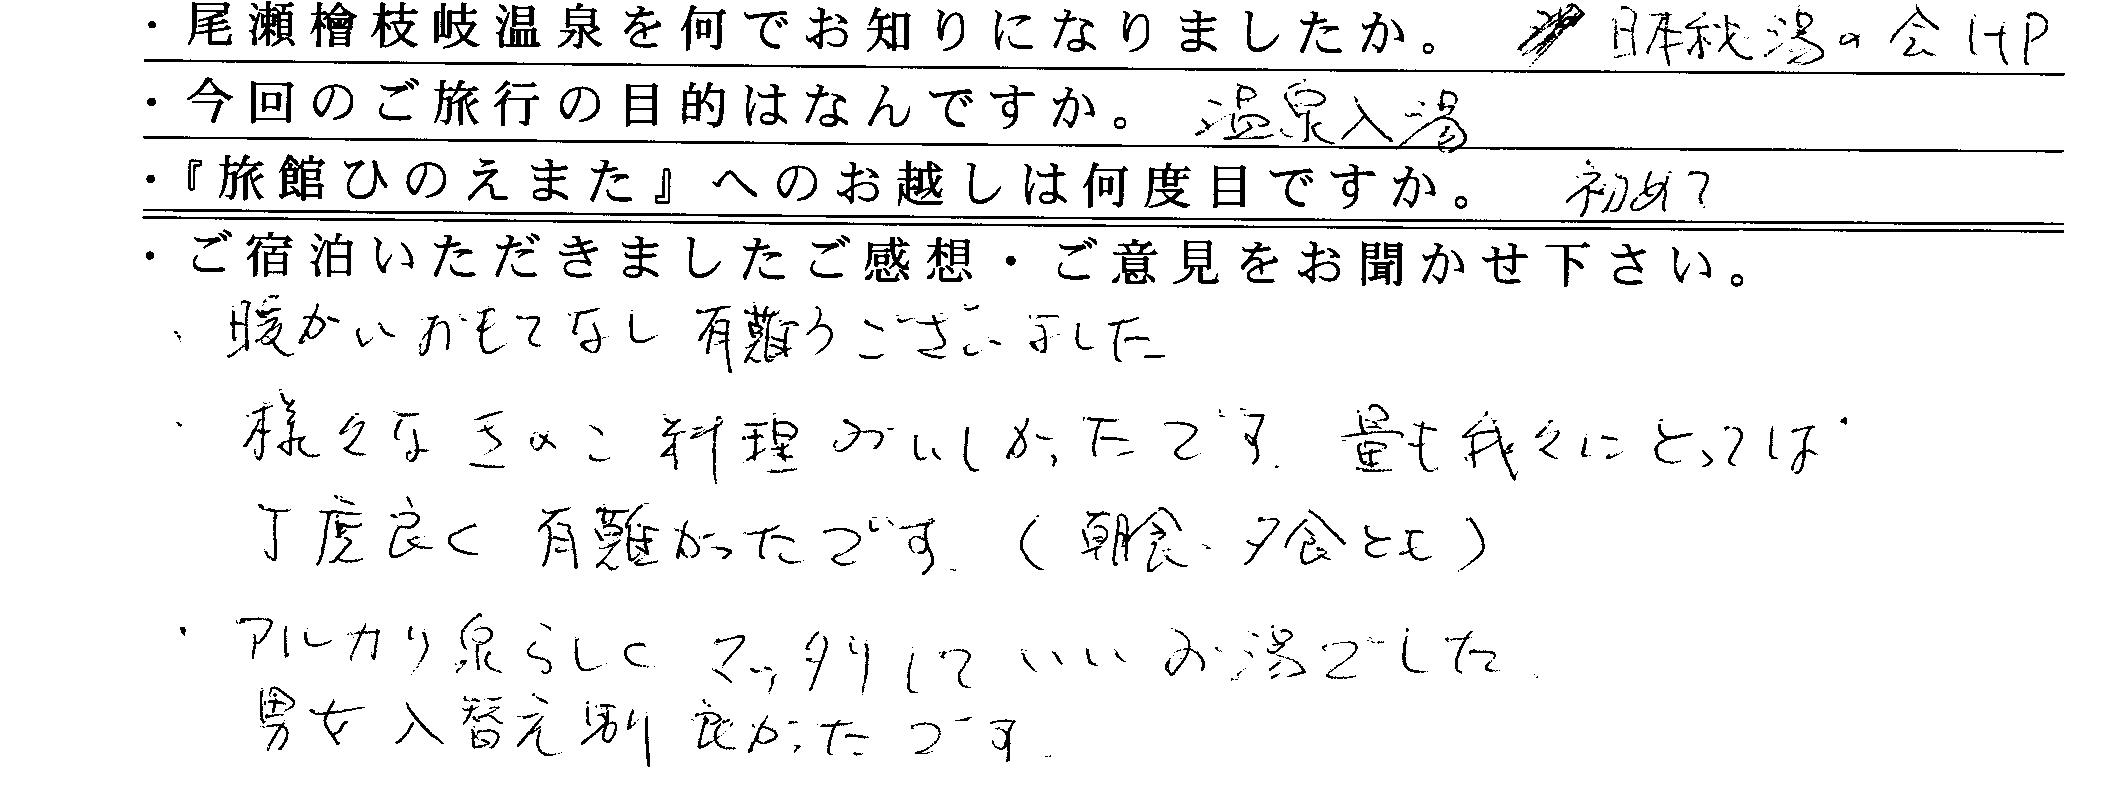 ・尾瀬檜枝岐温泉を何でお知りになりましたか。 日本秘湯の会HP
・今回のご旅行の目的はなんですか。 温泉入湯
・『旅館ひのえまた』へのお越しは何度目ですか。 初めて
・ご宿泊いただきましたご感想・ご意見をお聞かせ下さい。
・暖かいおもてなし有難うございました
・様々なきのこ料理おいしかったです. 量も我々にとっては
丁度良く有難かったです. (朝食・夕食とも)
・アルカリ泉らしくマッタリしていいお湯でした.
男女入替え制良かったです.